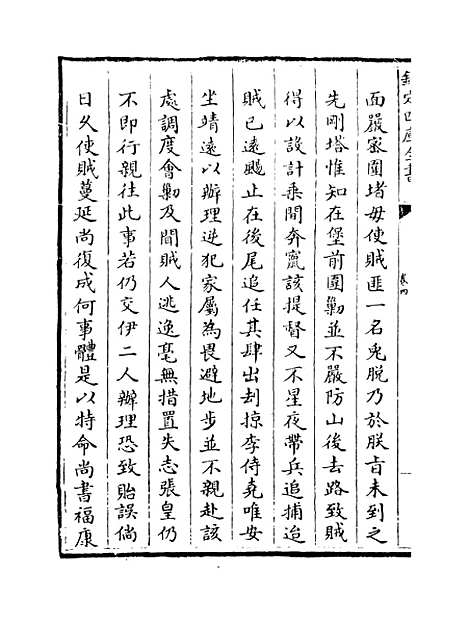 欽定四庫全書
卷四
面嚴密圍堵毋使賊匪一名兎脫乃於朕旨未到之
先剛塔惟知在堡前圍勦並不嚴防山後去路致賊
得以設計乗間奔竄該提督又不星夜帶兵追捕迨
賊已遠颺止在後尾追任其肆出刦掠李侍堯唯安
坐靖遠以辦理逆犯家屬為畏避地步並不親赴該
處調度會勦及聞賊人逃逸毫無措置失志張皇仍
不即行親往此事若仍交伊二人辦理恐致貽誤倘
日久使賊蔓延尚復成何事體是以特命尚書福康